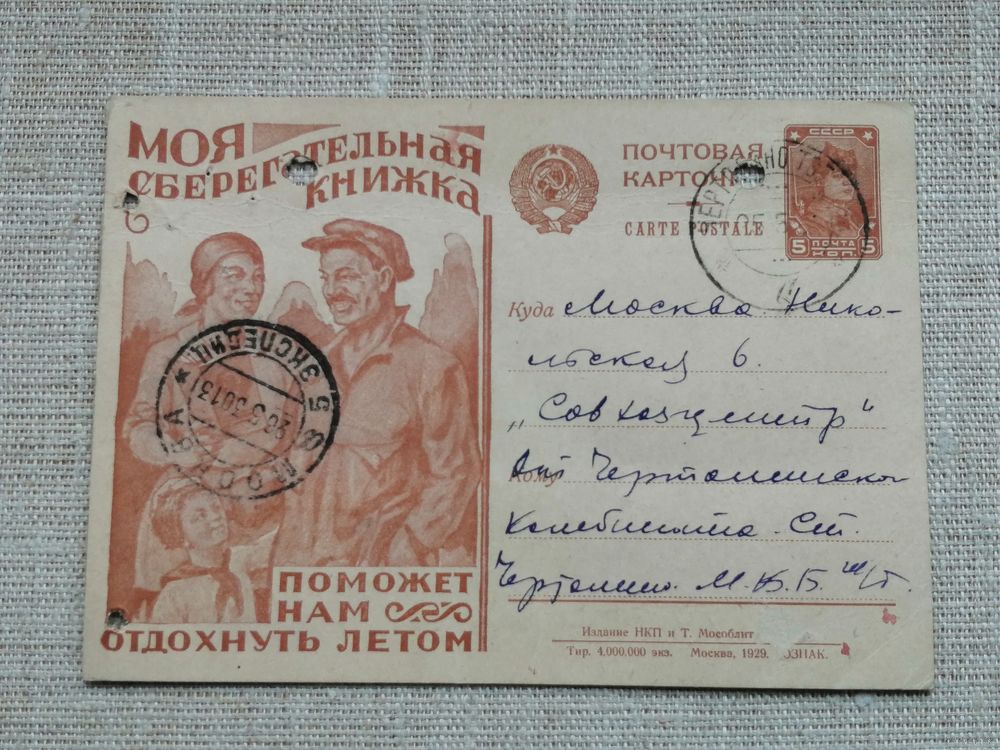 МОЯ
СБЕРЕГАТЕЛЬНАЯ
КНИЖКА
ПОМОЖЕТ
НАМ
ОТДОХНУТЬ ЛЕТОМ
МОСКВА
ЭКСПЕДИЦ
ПОЧТОВАЯ
КАРТОЧКА
CARTE POSTALE
СССР
5 ПОЧТА 5
КОП.
Куда Москва Нико-
льская 6.
"Совхозцентр"
Кому От Чертолинско
Комбината Ст.
Чертолино М.К.Б. ж/д
Издание НКП и Т. Мособлит
Тир. 4,000.000 экз. Москва, 1929. ОЗНАК.